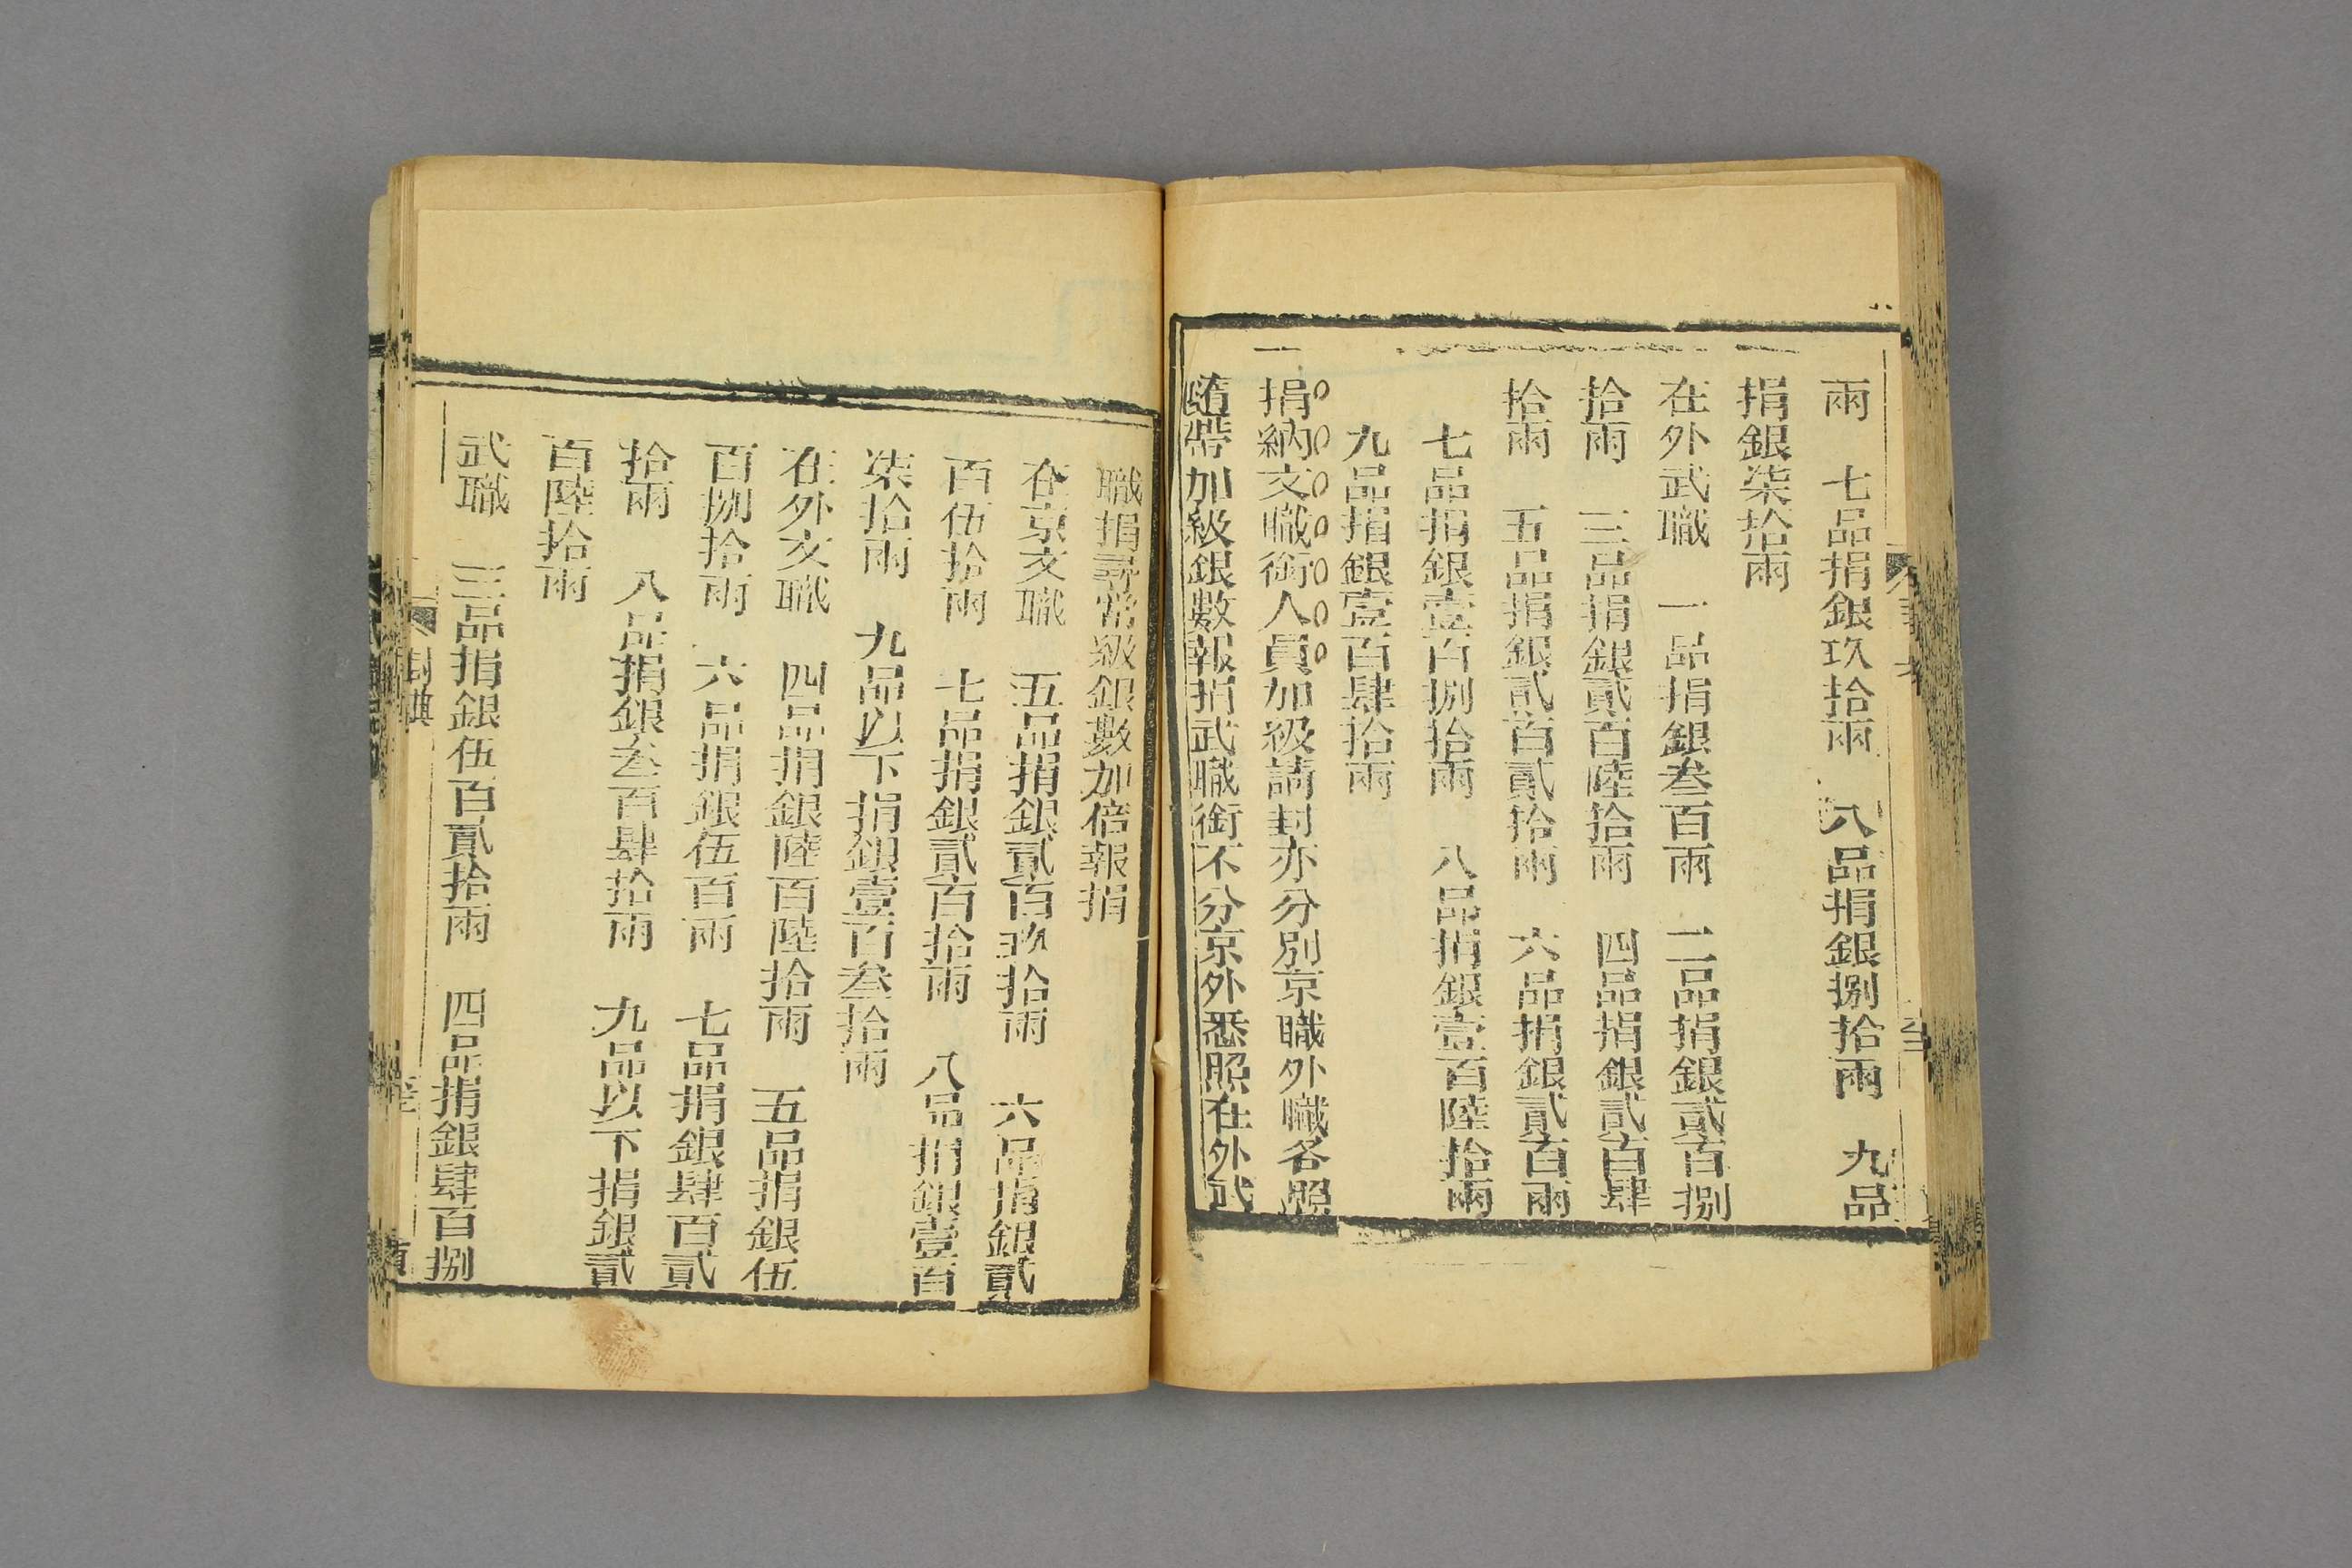 兩　七品捐銀玖拾兩　八品捐銀捌拾兩　九品
捐銀柒拾兩
在外武職　一品捐銀叁百兩　二品捐銀貳百捌
拾兩　三品捐銀貳百陸拾兩　四品捐銀貳百肆
拾兩　五品捐銀貳百貳拾兩　六品捐銀貳百兩
七品捐銀壹百捌拾兩　八品捐銀壹百陸拾兩
九品捐銀壹百肆拾兩
捐納文職銜人員加級請封亦分別京職外職各照
隨帶加級銀數報捐武職銜不分京外悉照在外武
職捐尋常級銀數加倍報捐
在京文職　五品捐銀貳百玖拾兩　六品捐銀貳
百伍拾兩　七品捐銀貳百拾兩　八品捐銀壹百
柒拾兩　九品以下捐銀壹百叁拾兩
在外文職　四品捐銀陸百陸拾兩　五品捐銀伍
百捌拾兩　六品捐銀伍百兩　七品捐銀肆百貳
拾兩　八品捐銀叁百肆拾兩　九品以下捐銀貳
百陸拾兩
武職　三品捐銀伍百貳拾兩　四品捐銀肆百捌